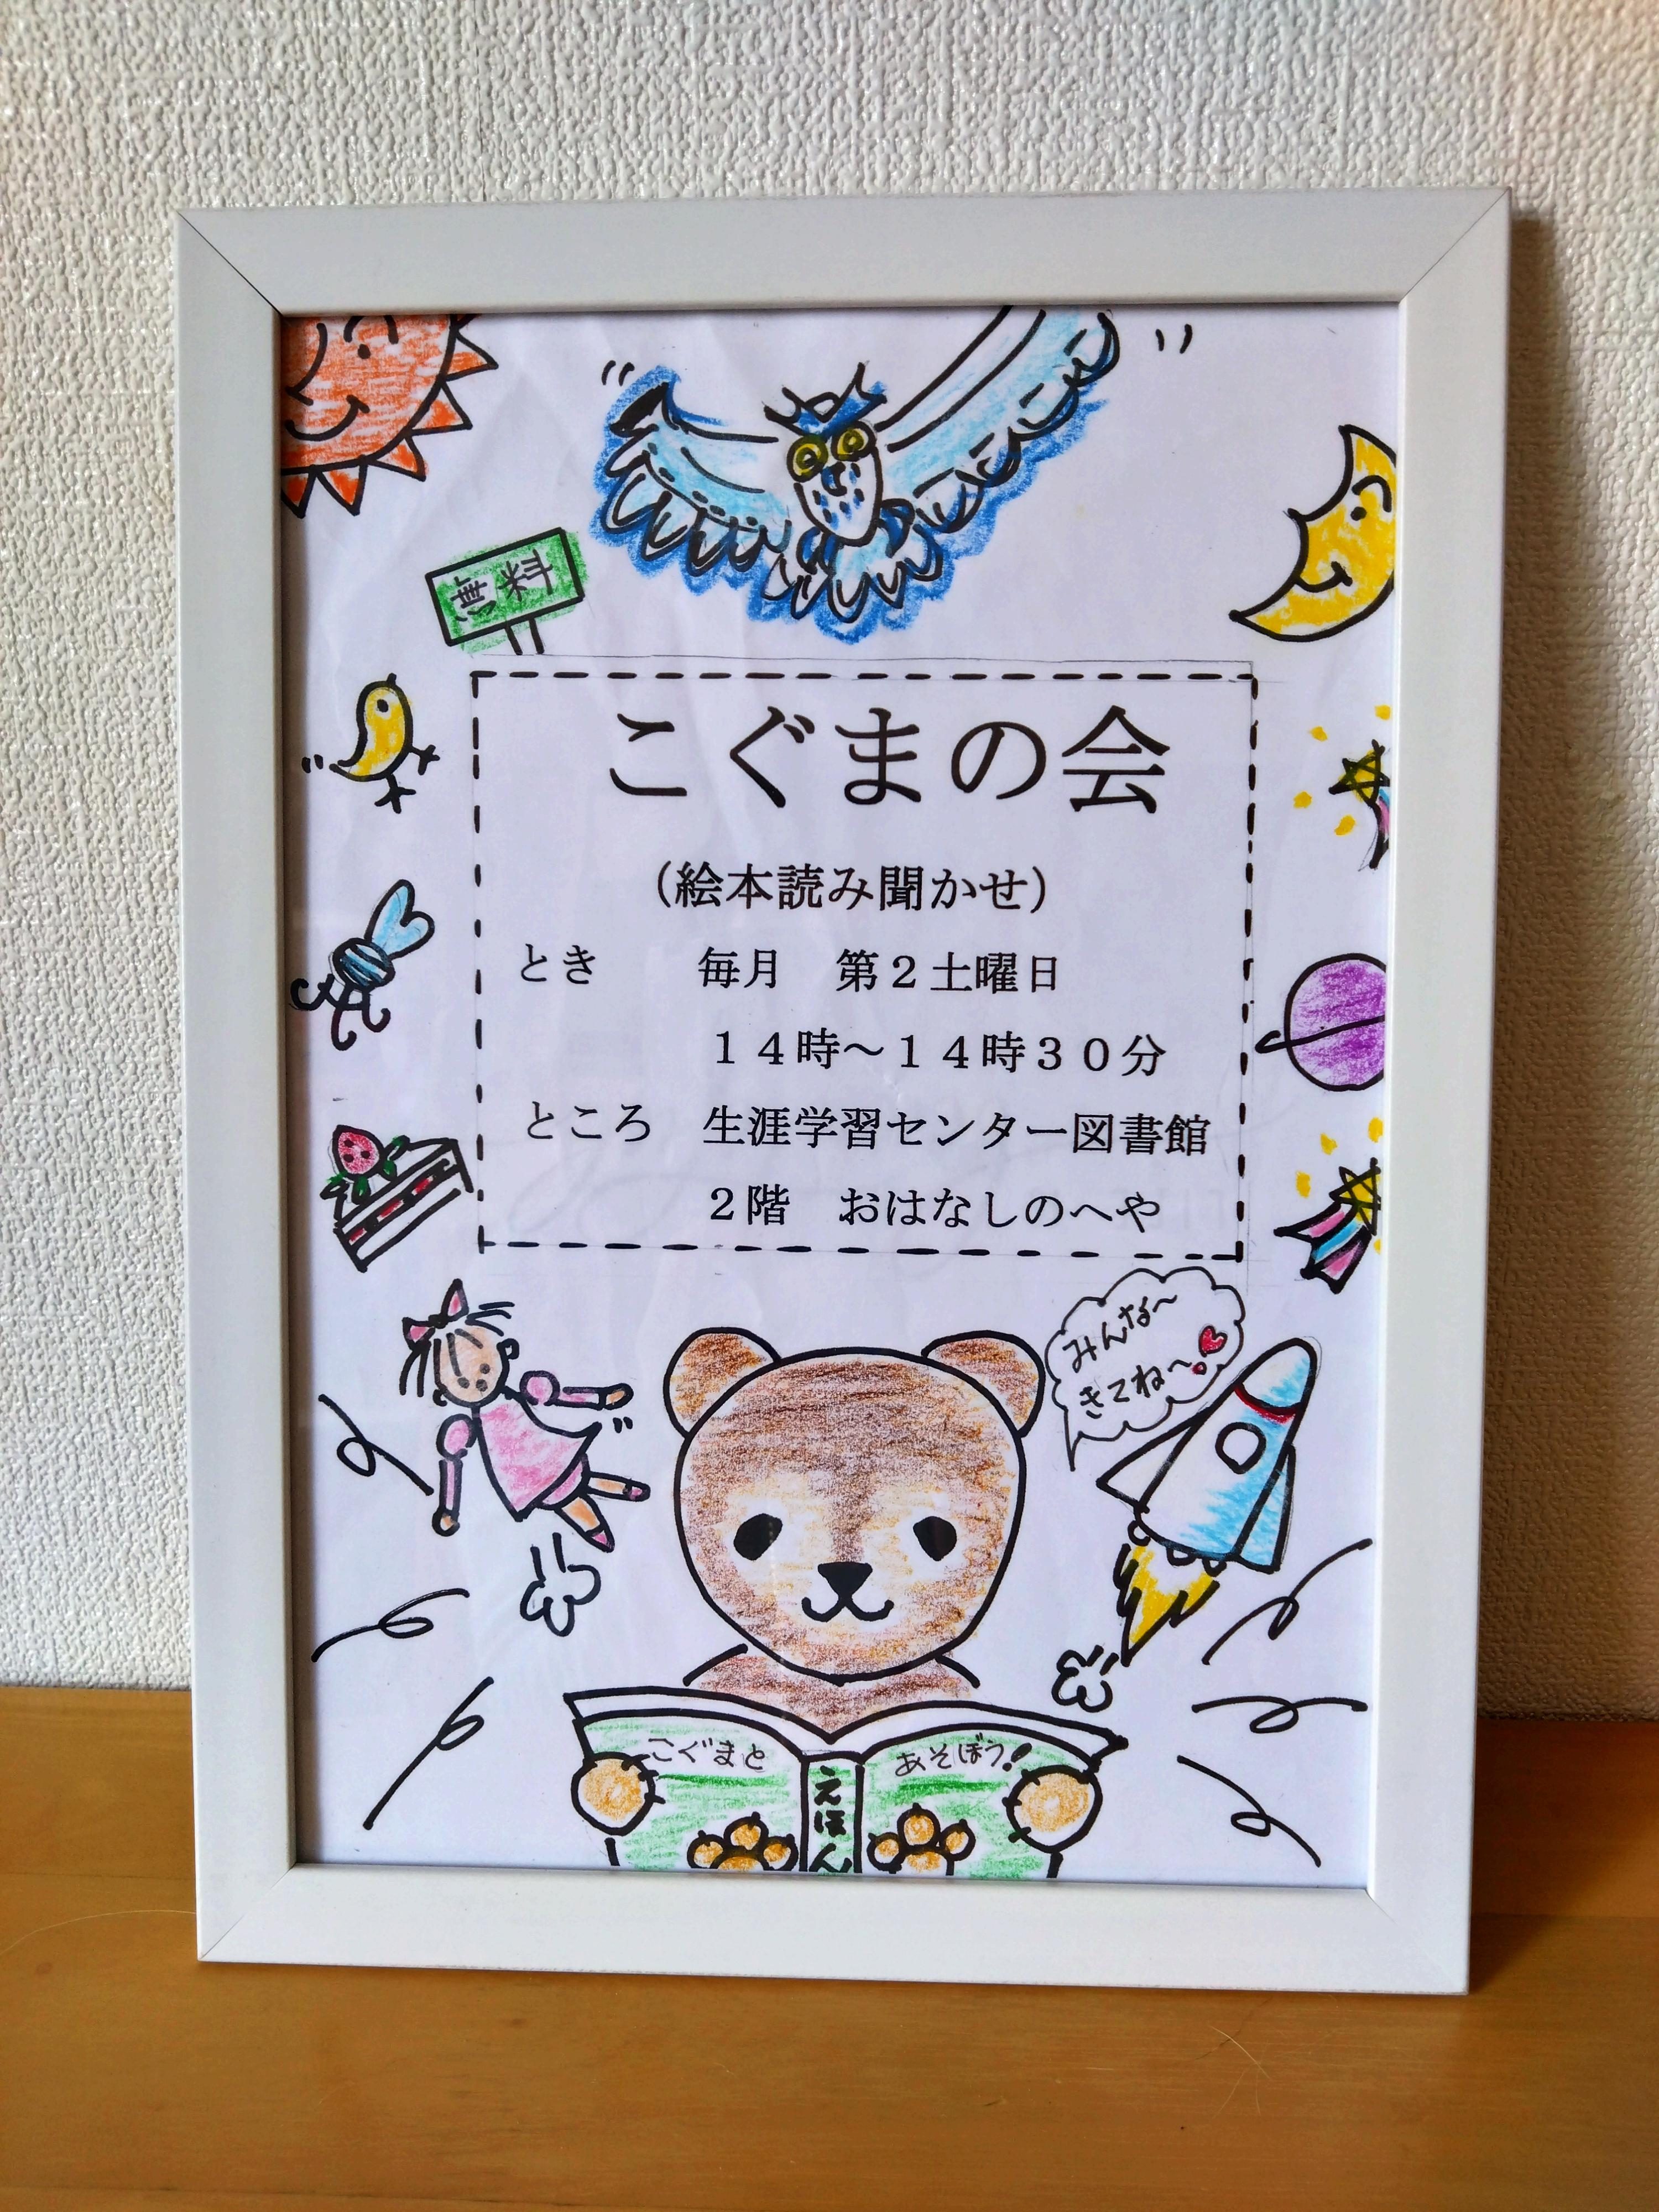 無料
こぐまの会
（絵本読み聞かせ）
とき　毎月　第２土曜日
１４時～１４時３０分
ところ　生涯学習センター図書館
２階　おはなしのへや
みんな～
きてね～
こぐまと
あそぼう！
えほん